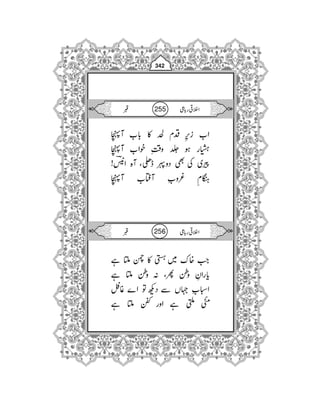 342
اخلاقی رباعی 255 قبر
اب زیرِ قدم لحد کا باب آپہنچا
ہشیار ہو جلد وقتِ خواب آپہنچا
پیری کی بھی دوپہر ڈھلی، آہ انیسؔ!
ہنگامِ غروبِ آفتاب آپہنچا
اخلاقی رباعی 256 قبر
جب خاک میں ہستی کا چمن ملتا ہے
یارانِ وطن نہ پھر، وطن ملتا ہے
اسبابِ جہاں سے تو دیکھ اے غافل
ملتی ہے اور کفن ملتا ہے